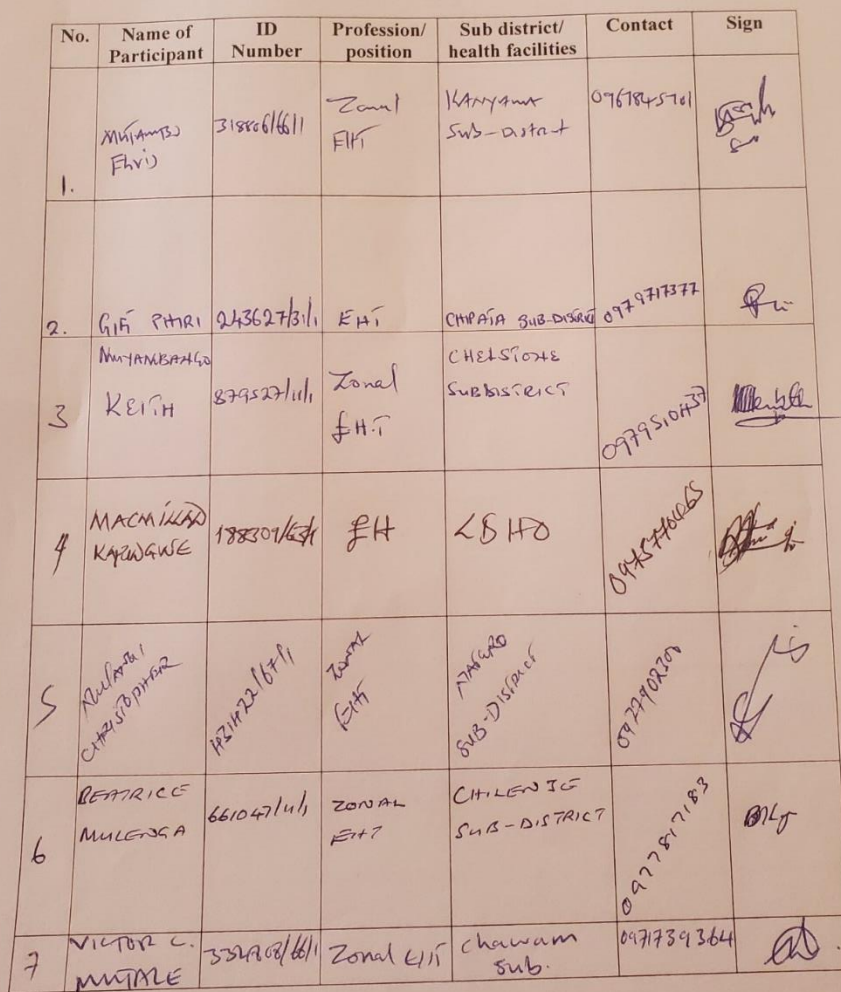 No. Name of Participant ID Number Profession/ position Sub district/ health facilities Contact Sign
1. Mutambo Elvis 318806/66/1 Zonal EHT KANYAMA Sub-District 0967845701
2. GIFT PHIRI 243627/31/1 EHT CHIPATA SUB-DISTRICT 0979717377
3 MUYAMBANGO KEITH 879527/11/1 Zonal EHT CHELSTONE SUBDISTRICT 0979510437
4 MACMILLAN KAPINGWE 188309/63/1 EH LDHO
5 CHRISTOPHER 431422/67/1 ZONAL EHT MATERO SUB-DISTRICT 0977902300
6 BEATRICE MULENGA 661047/11/1 ZONAL EHT CHILENJE SUB-DISTRICT 0977817183
7 VICTOR C. MUTALE Zonal EHT Chawam Sub. 0971739364